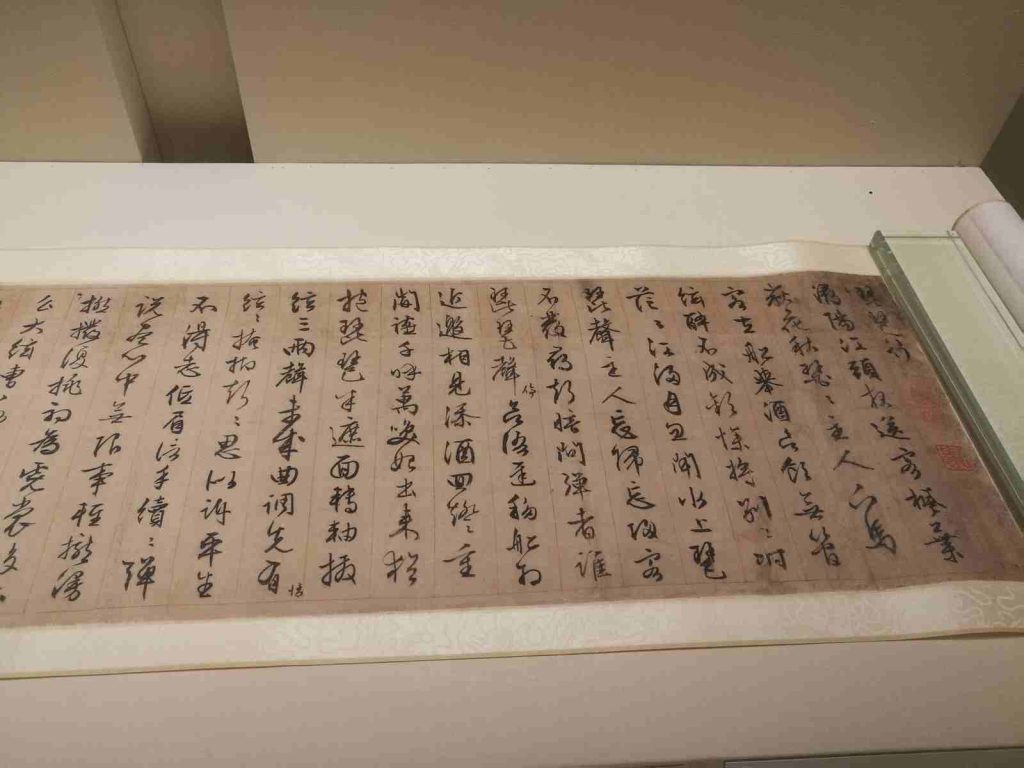 琵琶行
潯陽江頭夜送客楓葉
荻花秋瑟〻主人下馬
客在船舉酒欲飲無管
弦醉不成歡慘將別〻時
茫〻江浸月忽聞水上琵
琶聲主人忘歸客
不發尋聲暗問彈者誰
琵琶聲停欲語遲移船相
近邀相見添酒回燈重
開讌千呼萬喚始出來猶
抱琵琶半遮面轉軸撥
弦三兩聲未成曲調先有情
弦〻掩抑聲〻思似訴平生
不得志低眉信手續〻彈
說盡心中無限事輕攏慢
撚撥復挑初為霓裳後
么大弦嘈